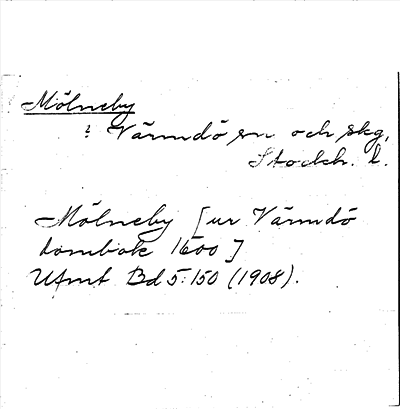 Mölneby
? Värmdö sn och skg,
Stockh. l.
Mölneby [ur Värmdö
dombok 1600]
Ufmt Bd 5:150 (1908).